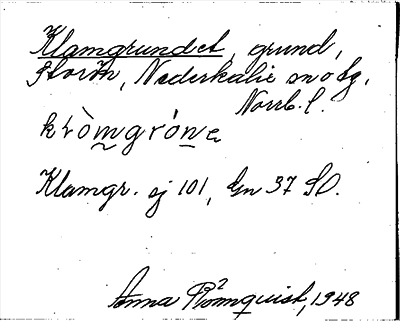 Klamgrundet, grund,
Storön, Nederkalix sn o tg,
Norrb. l.
Klamgr. ej 101, Gn 37 SO.
Anna Römquist, 1948